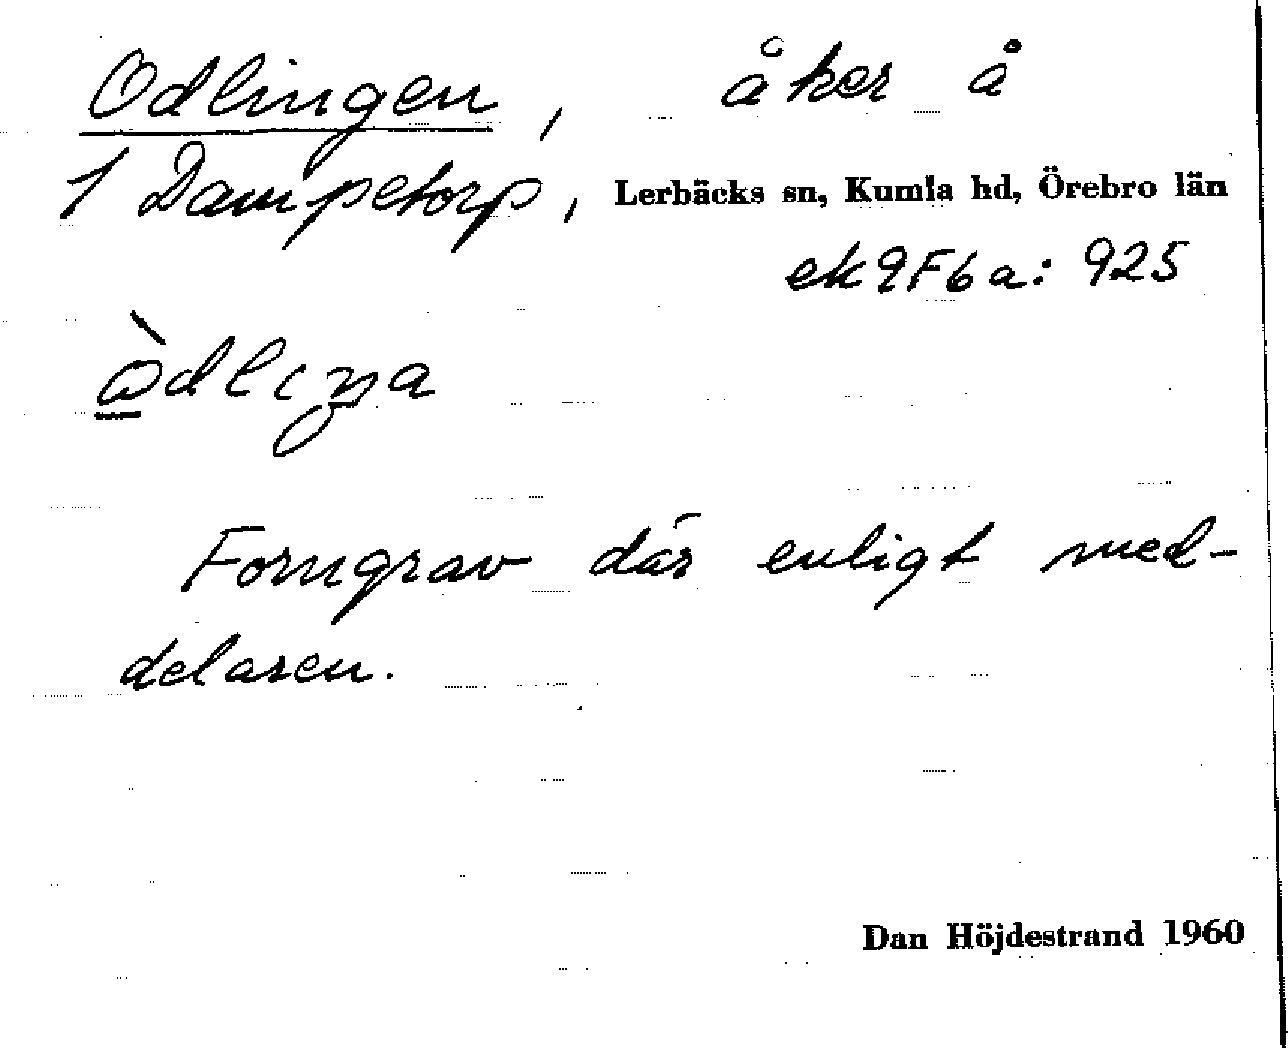 Odlingen, åker å
1 Dampetorp, Lerbäcks sn, Kumla hd, Örebro län
ek 9F6a: 925
Forngrav där enligt med-
delaren.
Dan Höjdestrand 1960